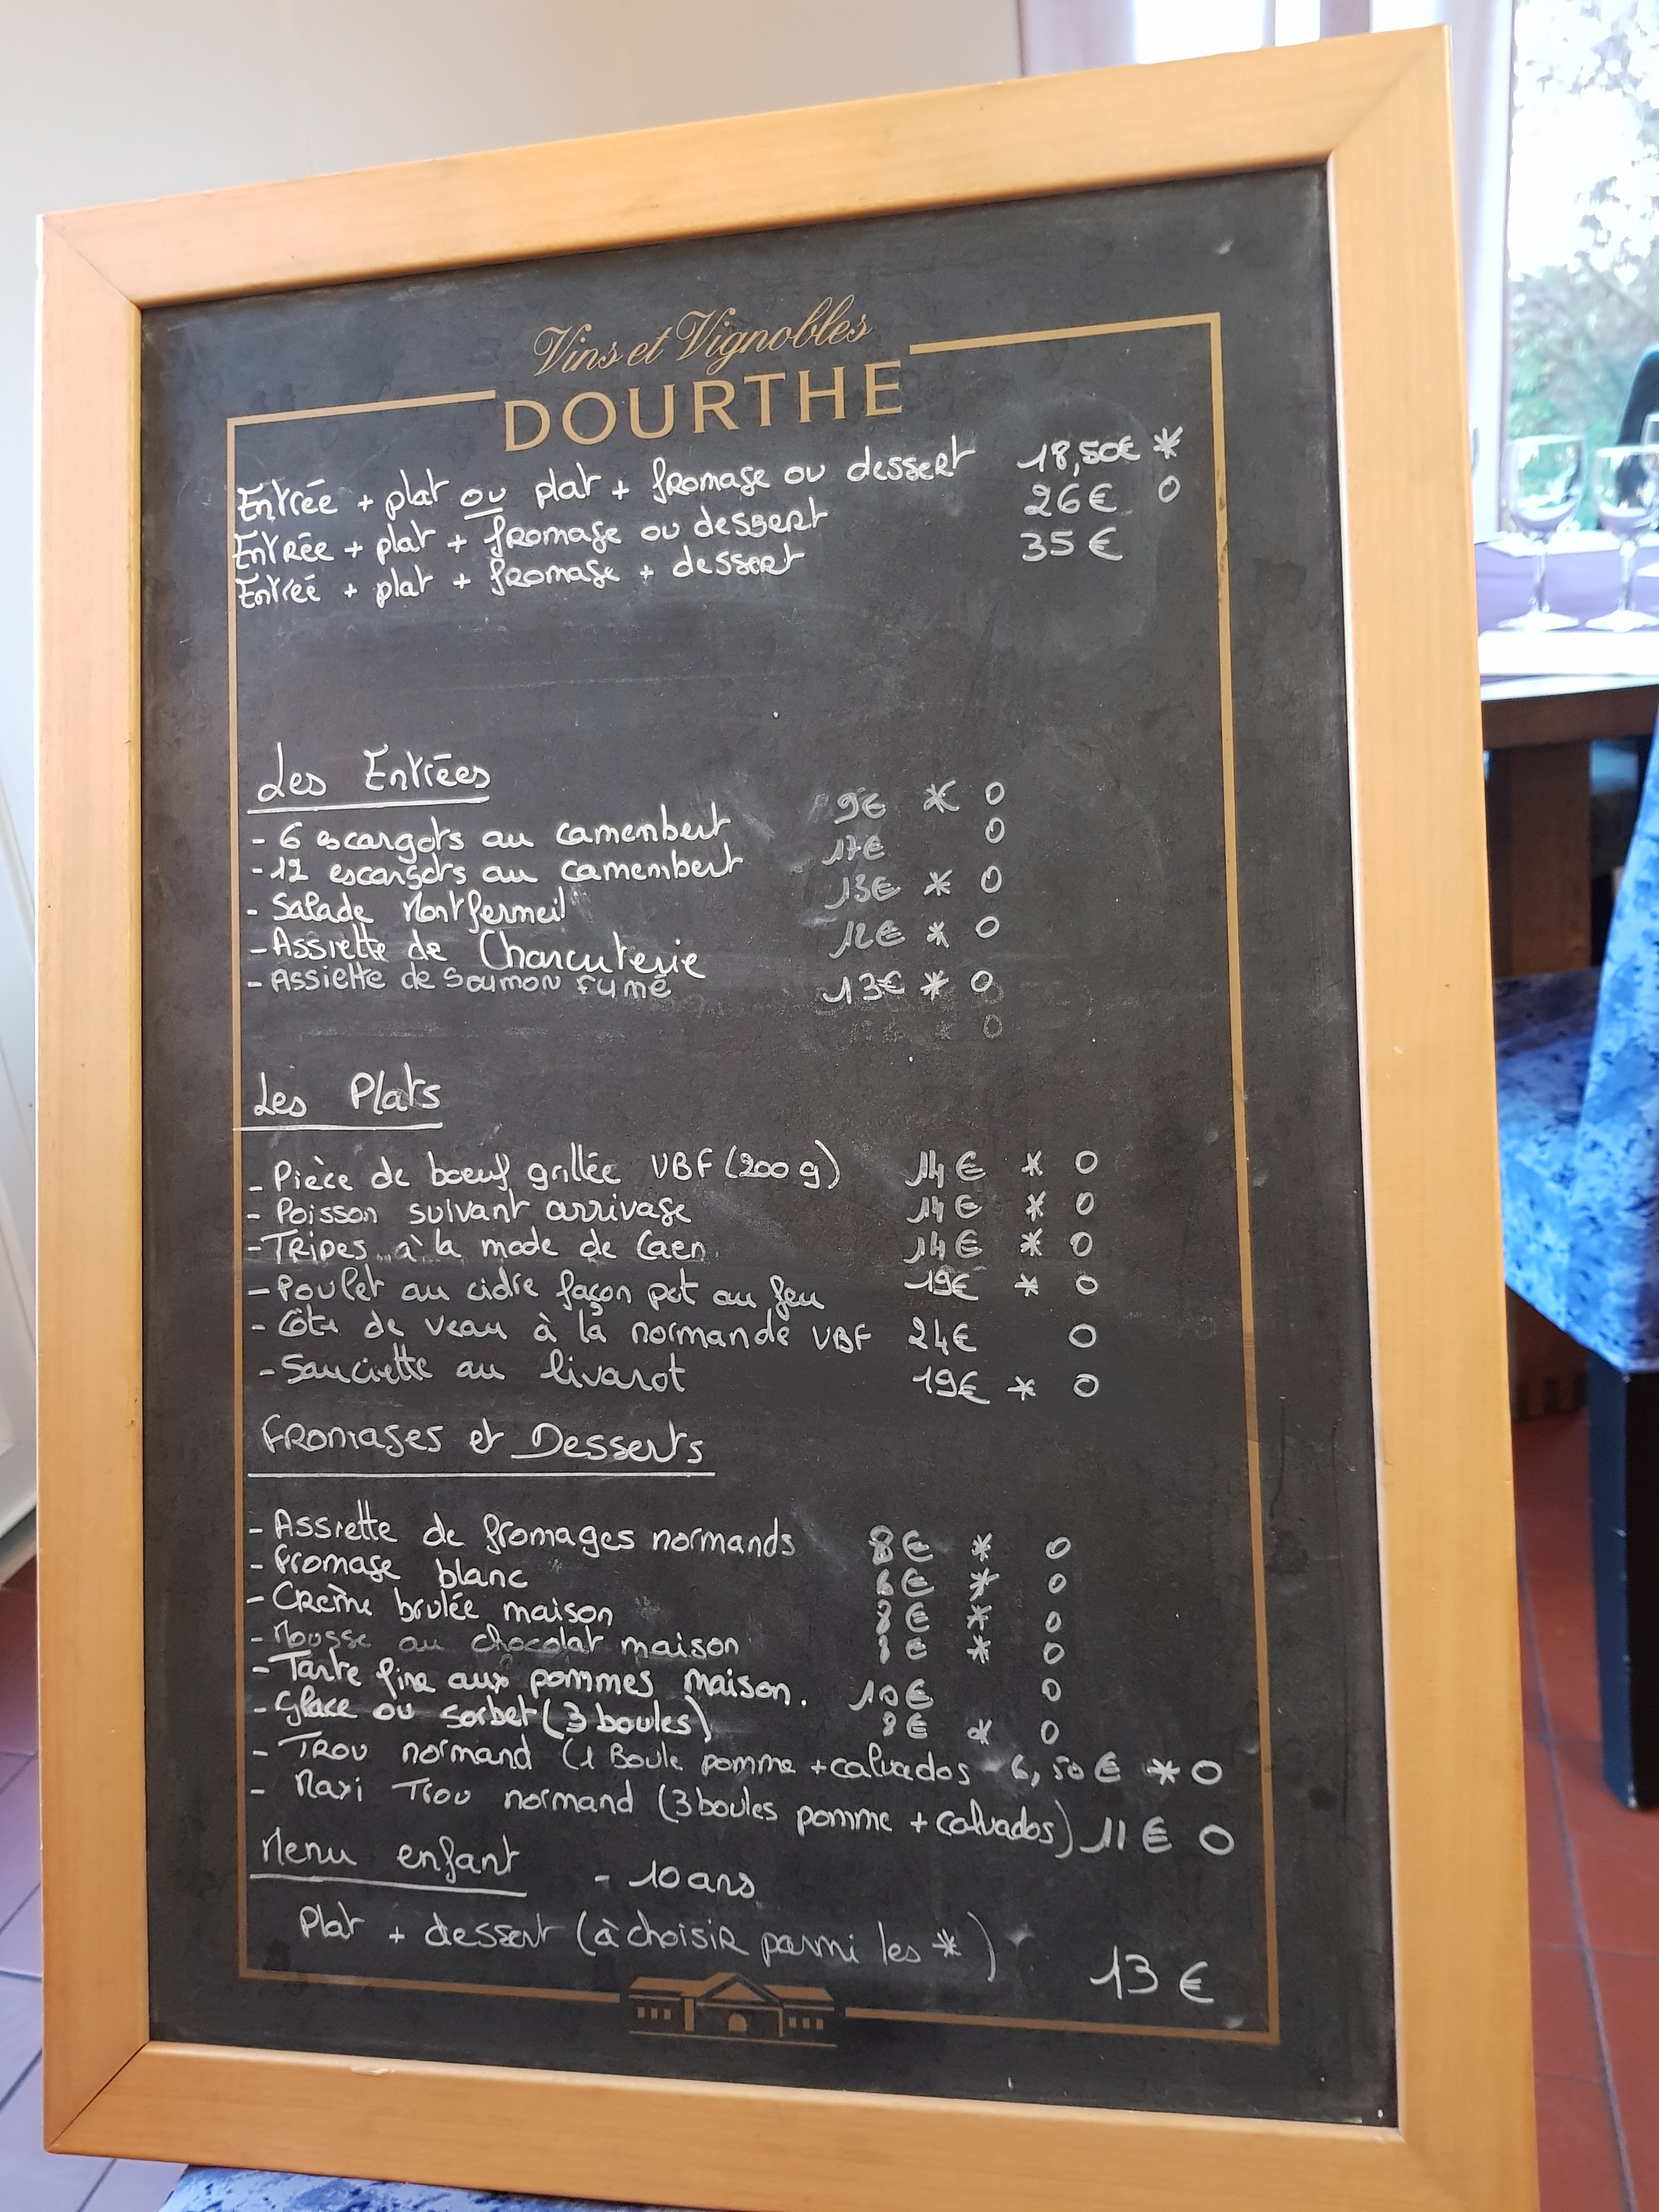 Vins et Vignobles
DOURTHE
Entrée + plat ou plat + fromage ou dessert 18,50€ *
Entrée + plat + fromage ou dessert 26€ O
Entrée + plat + fromage + dessert 35€
Les Entrées
- 6 escargots au camembert 9€ * O
- 12 escargots au camembert 17€ O
- Salade Montfermeil 13€ * O
- Assiette de Charcuterie 12€ * O
- Assiette de Saumon fumé 13€ * O
* O
Les Plats
- Pièce de boeuf grillée VBF (200 g) 14€ * O
- Poisson suivant arrivage 14€ * O
- Tripes à la mode de Caen 14€ * O
- Poulet au cidre façon pot au feu 19€ * O
- Côte de veau à la normande VBF 24€ O
- Saucisette au livarot 19€ * O
Fromages et Desserts
- Assiette de fromages normands 8€ * O
- Fromage blanc 6€ * O
- Crème brulée maison 8€ * O
- Mousse au chocolat maison 8€ * O
- Tarte fine aux pommes maison. 10€ O
- Glace ou sorbet (3 boules) 8€ * O
- Trou normand (1 Boule pomme + calvados 6,50€ * O
- Maxi Trou normand (3 boules pomme + calvados) 11€ O
Menu enfant - 10 ans
Plat + dessert (à choisir parmi les *) 13€